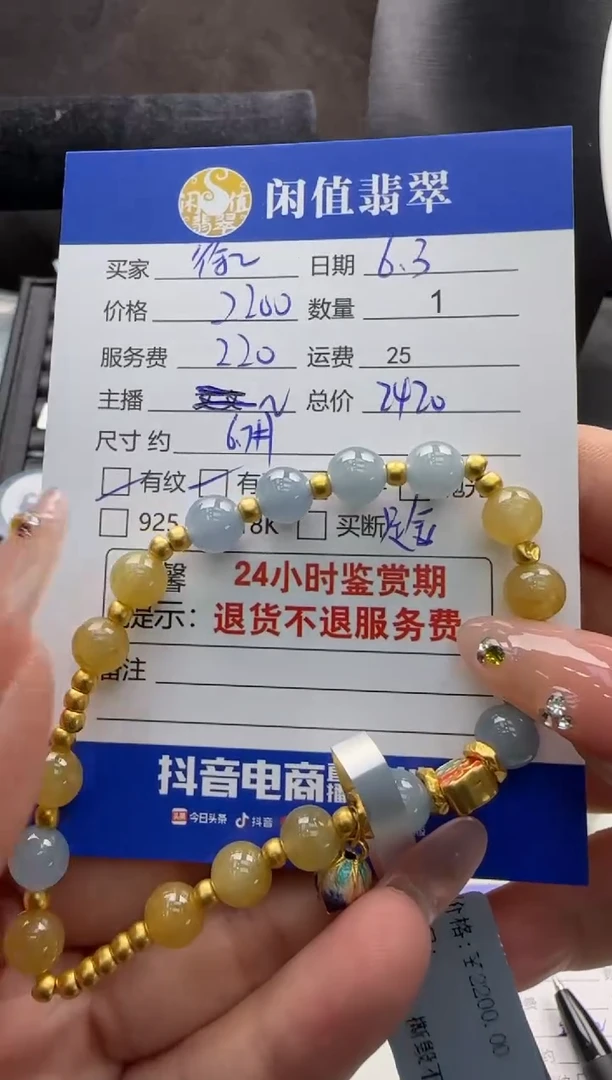 闲值翡翠
闲值
翡翠
买家 徐～ 日期 6.3
价格 2200 数量 1
服务费 220 运费 25
主播 总价 2420
尺寸 约 6.7用
有纹 有
925 8K 买断 足金
馨 24小时鉴赏期
提示: 退货不退服务费
备注
抖音电商直播
今日头条 抖音
价格: ¥2200.00
撕毁不